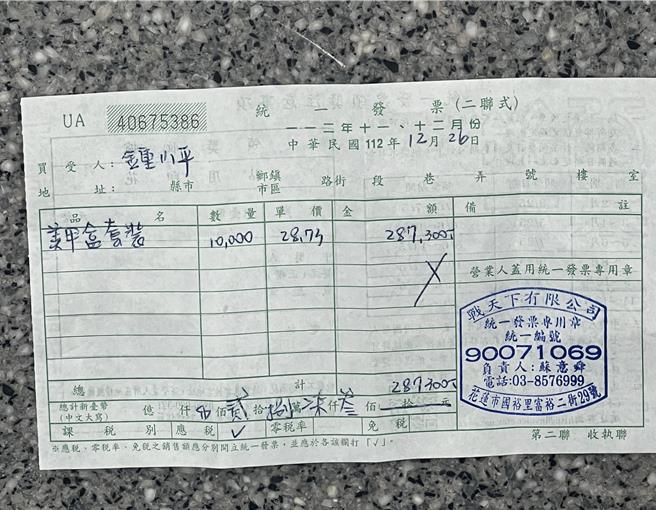 UA 40675386 統一發票(二聯式)
一一二年十一、十二月份
中華民國112年12月26日
買受人：鍾小平
地址： 縣市 鄉鎮市區 路街 段 巷 弄 號 樓 室
品名 數量 單價 金額 備註
美甲盒套裝 10,000 28,73 287,300
營業人蓋用統一發票專用章
戰天下有限公司
統一發票專用章
統一編號
90071069
負責人：蘇意舜
電話:03-8576999
花蓮市國裕里富裕二街29號
總計 287300
總計新臺幣(中文大寫) 億 仟 佰 貳 拾 捌 萬 柒 仟 叁 佰 拾 元
課稅別 應稅 ✓ 零稅率 免稅
第二聯 收執聯
※應稅、零稅率、免稅之銷售額應分別開立統一發票，並應於各該欄打「✓」。